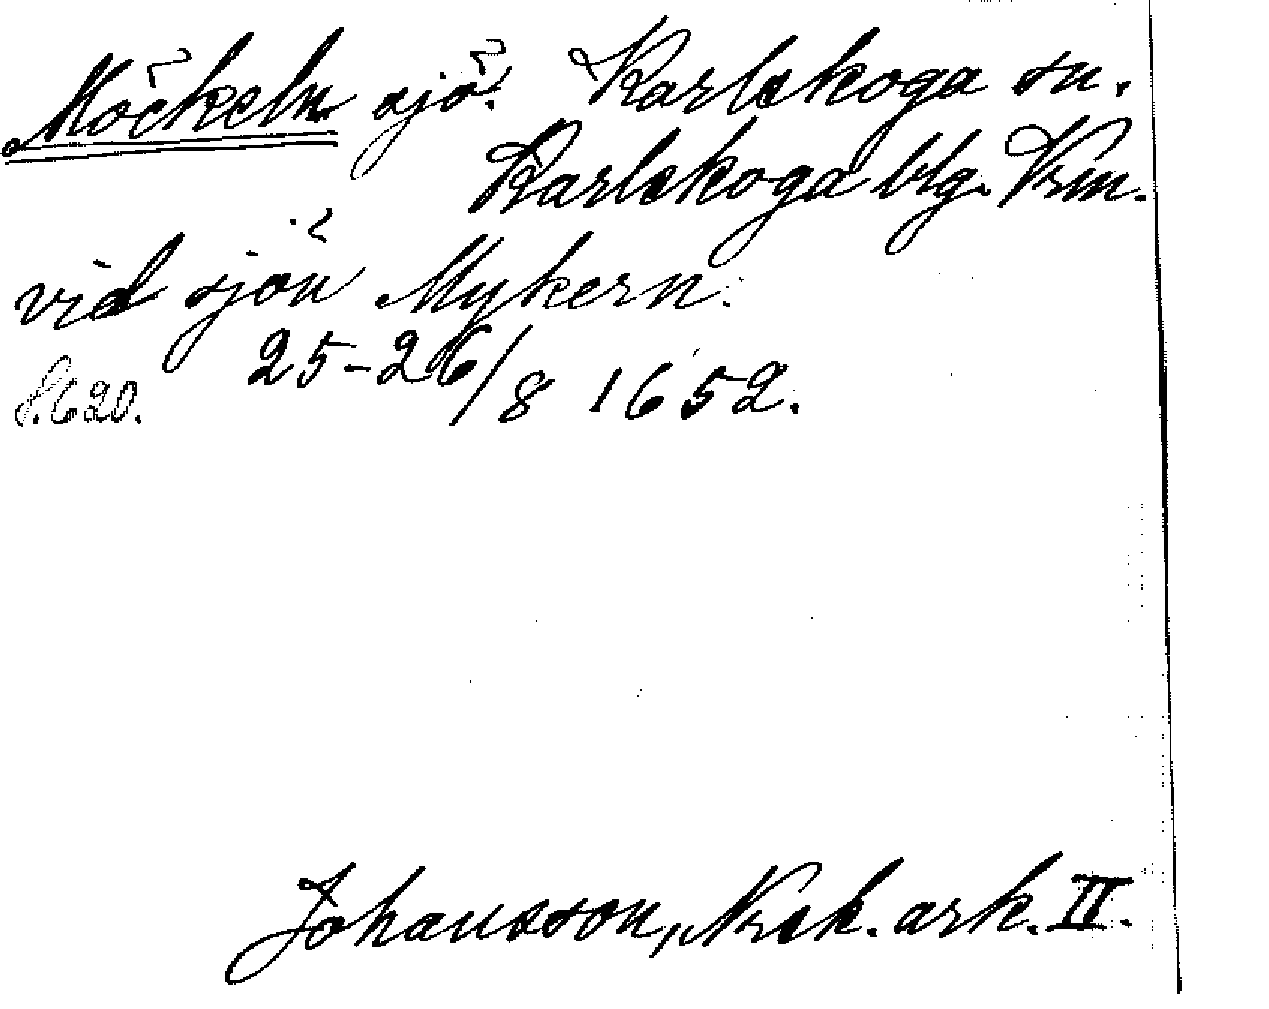 Möckeln sjö. Karlskoga sn.
Karlskoga blg. Vrm.
vid sjön Mykern.
S. 620. 25-26/8 1652.
Johansson, Norsk. ark. II.